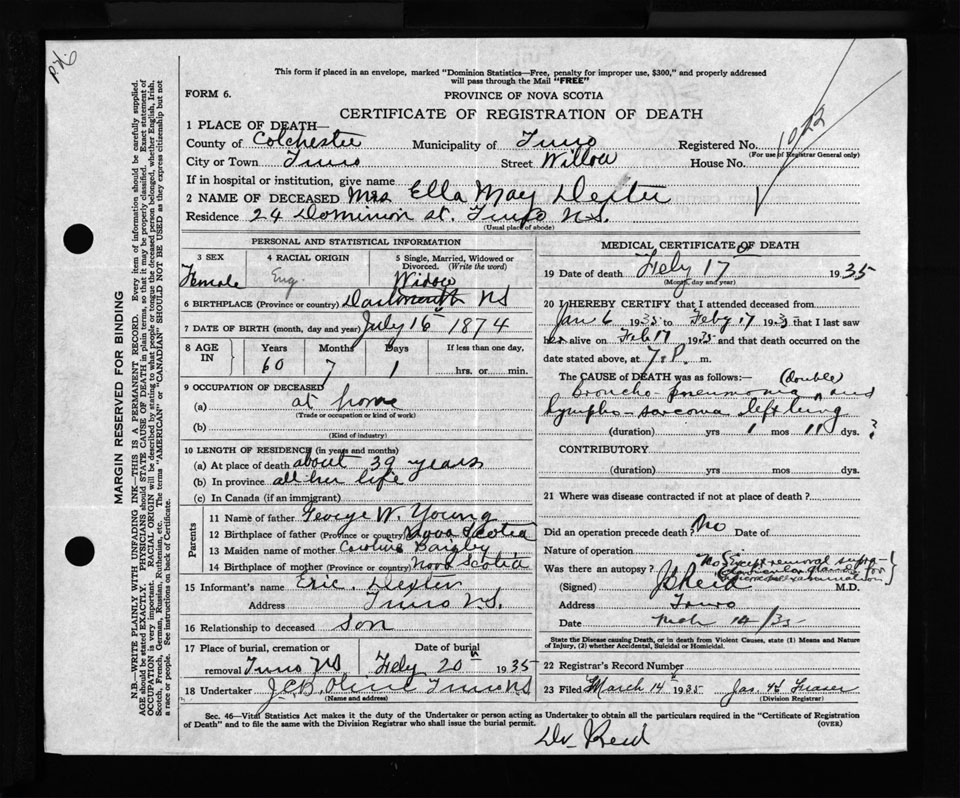 This form if placed in an envelope, marked "Dominion Statistics—Free, penalty for improper use, $300," and properly addressed
will pass through the Mail "FREE"
FORM 6.
PROVINCE OF NOVA SCOTIA
CERTIFICATE OF REGISTRATION OF DEATH
1 PLACE OF DEATH—
County of Colchester Municipality of Truro Registered No. 1022
(For use of Registrar General only)
City or Town Truro Street Willow House No.
If in hospital or institution, give name
2 NAME OF DECEASED Mrs Ella May Dexter
Residence 24 Dominion St. Truro N.S.
(Usual place of abode)
PERSONAL AND STATISTICAL INFORMATION
3 SEX 4 RACIAL ORIGIN 5 Single, Married, Widowed or
Divorced. (Write the word)
Female Eng. Widow
6 BIRTHPLACE (Province or country) Dartmouth NS
7 DATE OF BIRTH (month, day and year) July 16 1874
8 AGE IN Years Months Days If less than one day,
60 7 1 hrs. or min.
9 OCCUPATION OF DECEASED
(a) at home
(Trade or occupation or kind of work)
(b)
(Kind of industry)
10 LENGTH OF RESIDENCE (in years and months)
(a) At place of death about 39 years
(b) In province all her life
(c) In Canada (if an immigrant)
Parents
11 Name of father George W. Young
12 Birthplace of father (Province or country) Nova Scotia
13 Maiden name of mother Caroline
14 Birthplace of mother (Province or country) Nova Scotia
15 Informant's name Eric Dexter
Address Truro N.S.
16 Relationship to deceased son
17 Place of burial, cremation or Date of burial
removal Truro NS Feby 20 1935
18 Undertaker Truro NS
(Name and address)
MEDICAL CERTIFICATE OF DEATH
19 Date of death Feby 17 1935
(Month, day and year)
20 I HEREBY CERTIFY that I attended deceased from
Jan 6 1935 to Feby 17 1935 that I last saw
her alive on Feb 17 1935 and that death occurred on the
date stated above, at 7. P. m.
The CAUSE of DEATH was as follows:— (double)
Broncho-pneumonia and
lympho-sarcoma left lung
(duration) yrs 1 mos 11 dys. ?
CONTRIBUTORY
(duration) yrs. mos. dys.
21 Where was disease contracted if not at place of death?
Did an operation precede death? No Date of
Nature of operation
Was there an autopsy? No Except removal supra
clavicular glands for
examination
(Signed) J Reid M.D.
Address Truro
Date Mch 14/35
State the Disease causing Death, or in death from Violent Causes, state (1) Means and Nature
of Injury, (2) whether Accidental, Suicidal or Homicidal.
22 Registrar's Record Number
23 Filed March 14 1935 Jas. Fraser
(Division Registrar)
Sec. 46—Vital Statistics Act makes it the duty of the Undertaker or person acting as Undertaker to obtain all the particulars required in the "Certificate of Registration
of Death" and to file the same with the Division Registrar who shall issue the burial permit. (OVER)
Dr Reid
MARGIN RESERVED FOR BINDING
N.B.—WRITE PLAINLY WITH UNFADING INK—THIS IS A PERMANENT RECORD. Every item of information should be carefully supplied.
AGE should be stated EXACTLY. PHYSICIANS should STATE CAUSE OF DEATH in plain terms, so that it may be properly classified. Exact statement of
OCCUPATION is very important. RACIAL ORIGIN will be described by stating to what people or tongue the deceased person belonged, whether English, Irish,
Scotch, French, German, Russian, Ruthenian, etc. The terms "AMERICAN" or "CANADIAN" SHOULD NOT BE USED as they express citizenship but not
a race or people. See instructions on back of Certificate.